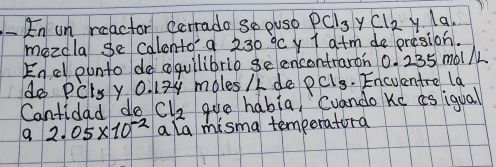 .- En un reactor cerrado se puso PCl3 y Cl2 y la.
mezcla se calento a 230 °C y 1 atm de presion.
En el punto de equilibrio se encontraron 0.235 mol/L
de PCl5 y 0.174 moles/L de PCl3. Encuentre la
Cantidad de Cl2 que habia, Cuando Kc es igual
a 2.05x10-2 a la misma temperatura